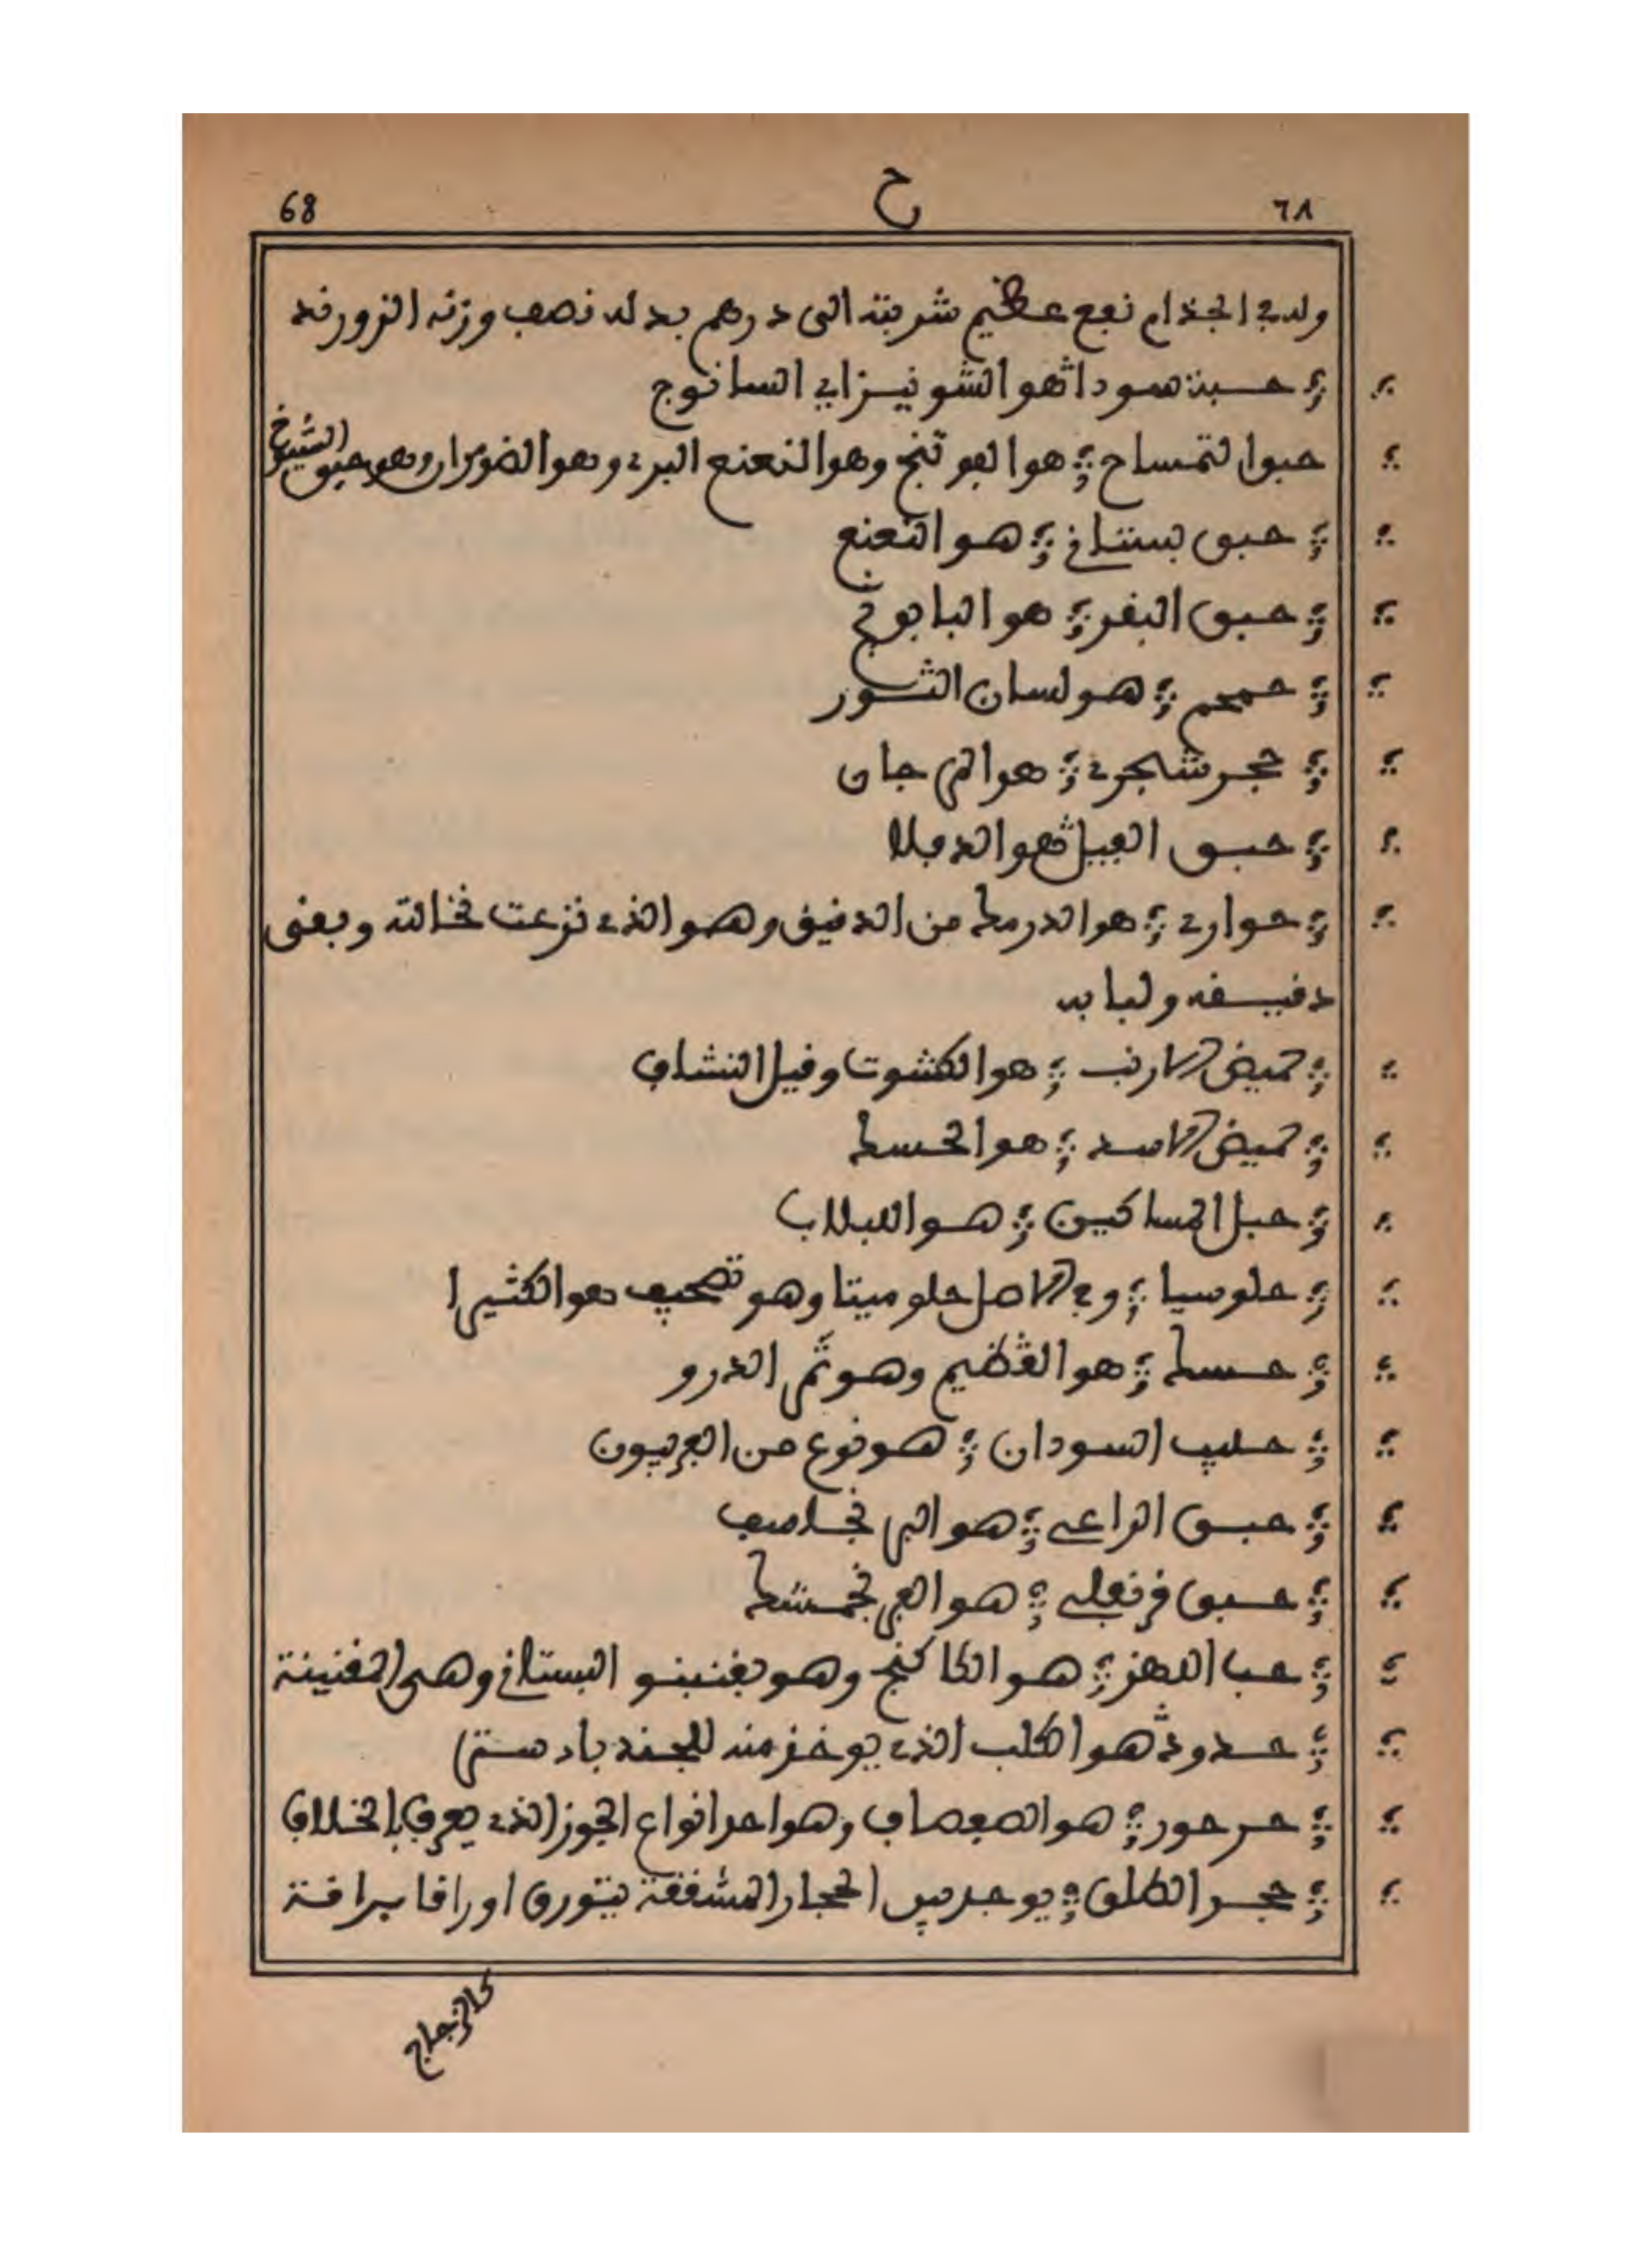 68 ح ٦٨
وله في الجذام نفع عظيم شربته الى درهم بدله نصف وزنه الزرورند
حبة سودا هو الشونيز اي السانوج
حبق التمساح هو الفوتنج وهو النعنع البري وهو الضومران وهو حبق الشيوخ
حبق بستاني هو النعنع
حبق البقر هو البابونج
حمحم هو لسان الثور
حجر شجري هو المرجان
حبق الفيل هو
حواري هو الدرمك من الدقيق وهو الذي نزعت نخالته وبقى
دقيقه ولبابه
حميض الارنب هو الكشوت وقيل النشاف
حميض الاسد هو الحسك
حبل المساكين هو اللبلاب
حلوسيا وفي الاصل حلوميتا وهو تصحيف هو الكثيرا
حسك هو القطيم وهو ثمر الدرو
حليب السودان هو نوع من الفربيون
حبق الراعي هو البرنجاسف
حبق قرنفلي هو الفرنجمشك
حب اللهو هو الكاكنج وهو بقنينو البستاني وهي القنينة
حدود هو الكلب الذي يوخذ منه الجند بادستر
حرحور هو الصفصاف وهو احد انواع الجوز الذي يعرف بالخلاف
حجر الطلق يوجد بين الحجار المشققة يتورق اوراقا براقة
كالزجاج